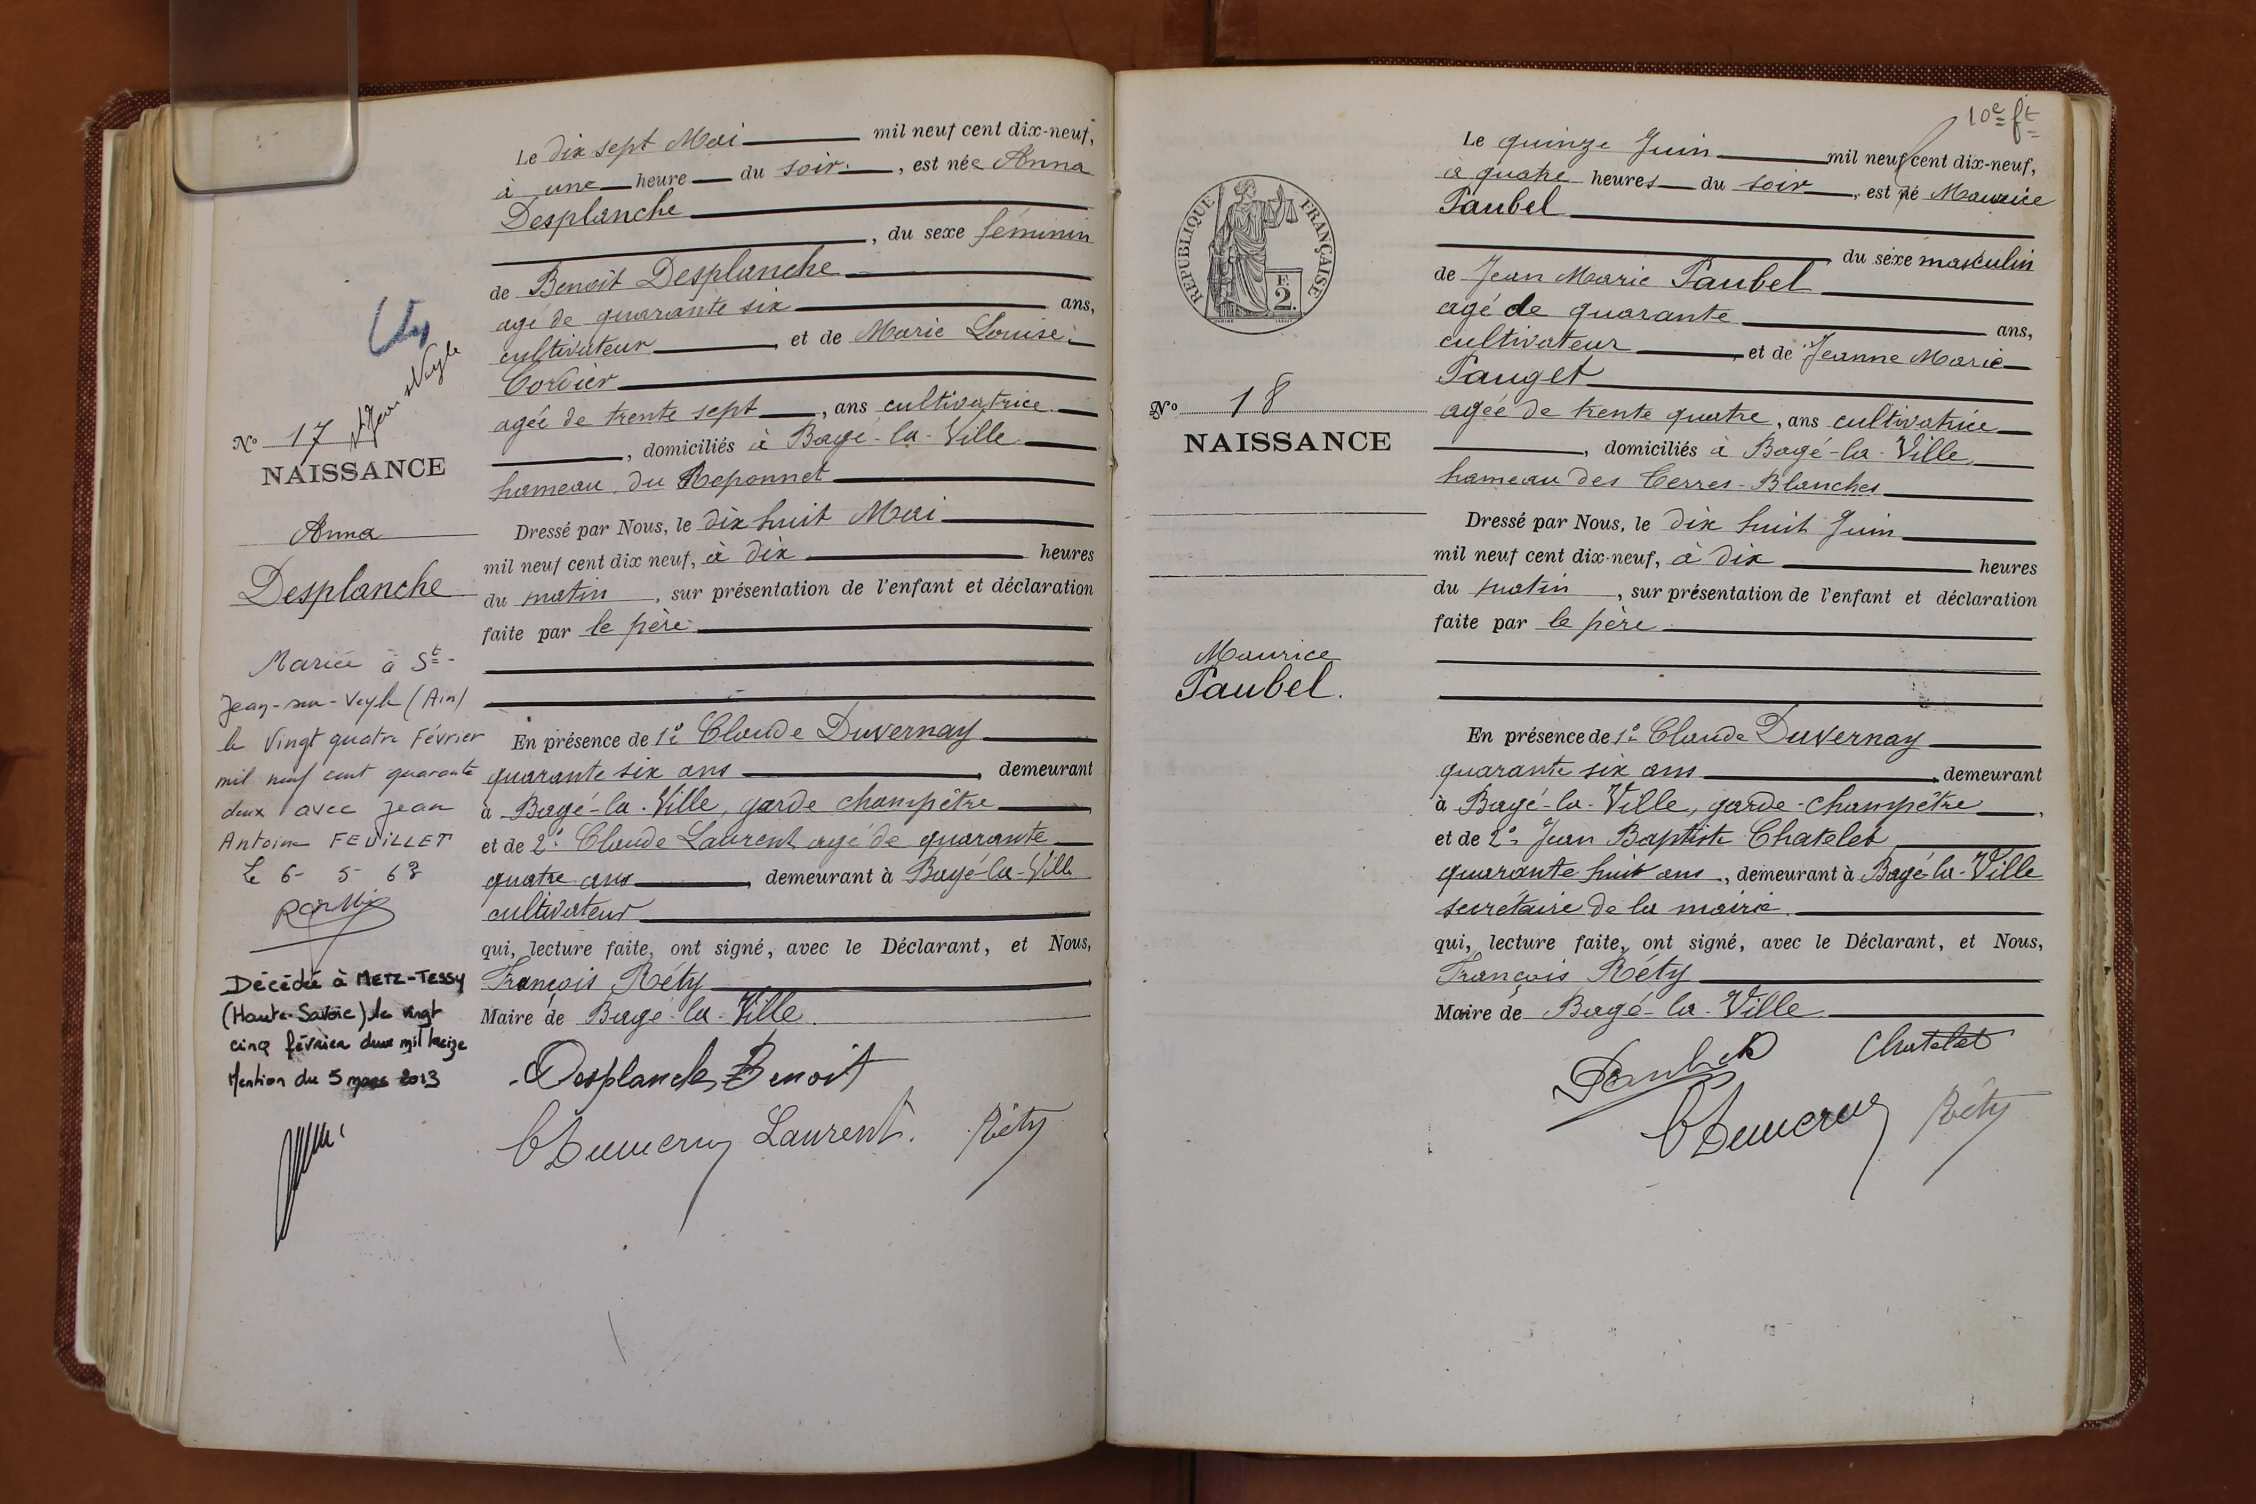 Le dix sept Mai mil neuf cent dix-neuf,
à une heure du soir, est née Anna
Desplanche
, du sexe féminin
de Benoît Desplanche
agé de quarante six ans,
cultivateur, et de Marie Louise
Cordier
agée de trente sept, ans cultivatrice
, domiciliés à Bagé-la-Ville
hameau du Reponnet
Dressé par Nous, le dix huit Mai
mil neuf cent dix neuf, à dix heures
du matin, sur présentation de l'enfant et déclaration
faite par le père
En présence de 1° Claude Duvernay
quarante six ans, demeurant
à Bagé-la-Ville, garde champêtre
et de 2° Claude Laurent agé de quarante
quatre ans, demeurant à Bagé-la-Ville
cultivateur
qui, lecture faite, ont signé, avec le Déclarant, et Nous,
François Réty
Maire de Bagé-la-Ville.
Desplanche Benoit
Laurent. Réty
St Jean s/Veyle
N° 17
NAISSANCE
Anna
Desplanche
Mariée à St-
Jean-sur-Veyle (Ain)
le Vingt quatre Février
mil neuf cent quarante
deux avec Jean
Antoine FEUILLET
Le 6- 5- 63
Décédée à METZ-TESSY
(Haute-Savoie) le vingt
cinq février deux mil treize
Mention du 5 mars 2013
10e ft
RÉPUBLIQUE FRANÇAISE
E
2
N° 18
NAISSANCE
Maurice
Paubel.
Le quinze Juin mil neuf cent dix-neuf,
à quatre heures du soir, est né Maurice
Paubel
du sexe masculin
de Jean Marie Paubel
agé de quarante ans,
cultivateur et de Jeanne Marie
Pauget
agée de trente quatre, ans cultivatrice
, domiciliés à Bagé-la-Ville,
hameau des Terres-Blanches
Dressé par Nous, le dix huit Juin
mil neuf cent dix-neuf, à dix heures
du matin, sur présentation de l'enfant et déclaration
faite par le père
En présence de 1° Claude Duvernay
quarante six ans, demeurant
à Bagé-la-Ville, garde-champêtre,
et de 2° Jean Baptiste Chatelet
quarante huit ans, demeurant à Bagé-la-Ville
secrétaire de la mairie.
qui, lecture faite, ont signé, avec le Déclarant, et Nous,
François Réty
Maire de Bagé-la-Ville
Paubel Chatelet
Réty